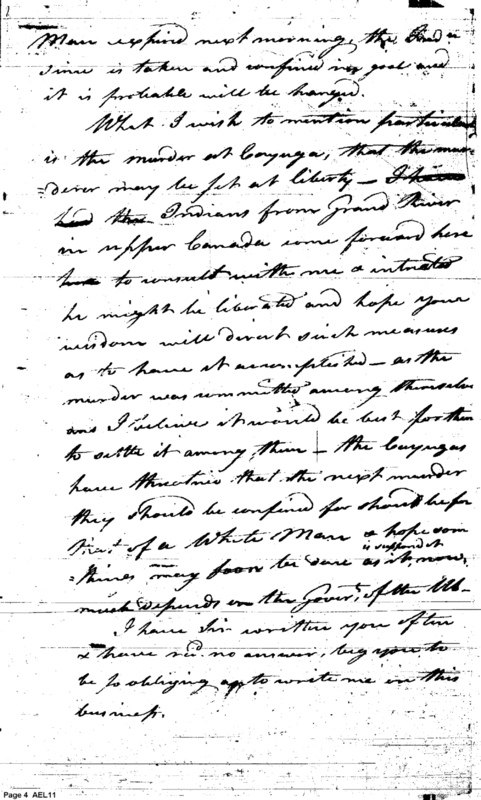 Man expired next morning, the Ind n
since is taken and confined in goal and
it is probable will be hanged.
What I wish to mention particular
is the murder at Cayuga, that the mur
=derer may be set at liberty –
Indians from Grand River
in upper Canada come forward here
to consult with me & intreated
he might be liberated and hope your
wisdom will direct such measures
as to have it accomplished – as the
murder was committed among themselves
and I believe it would be best for them
to settle it among them – the Cayugas
have threatned that the next murder
they should be confined for should be for
that of a White Man & hope som
=things may soon be done as it now,
is suspended
much depends on the Gover.t of the U
I have Sir written you often
& have recd. no answer, beg you to
be so obliging as to write me on this
business.
Page 4 AEL11